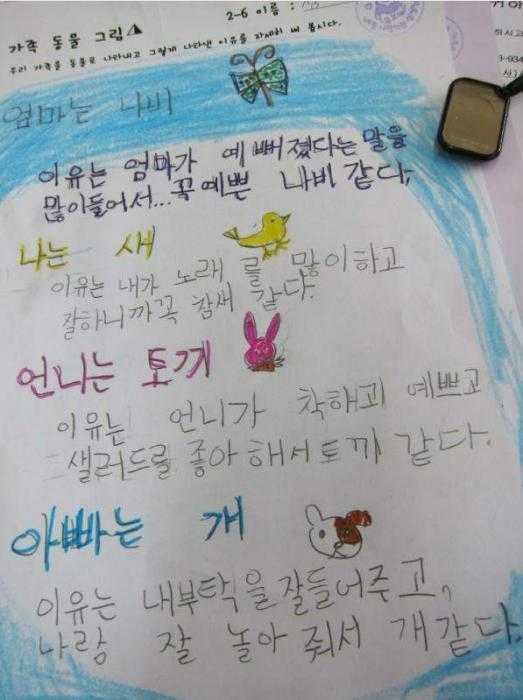 2-6 이름 :
가족 동물 그림
우리 가족을 동물로 나타내고 그렇게 나타낸 이유를 자세히 써 봅시다.
엄마는 나비
이유는 엄마가 예뻐졌다는 말을
많이들어서...꼭예쁜 나비 같다,
나는 새
이유는 내가 노래를 많이하고
잘하니까꼭 참새 같다.
언니는 토끼
이유는 언니가 착하고 예쁘고
샐러드를 좋아해서토끼 같다.
아빠는 개
이유는 내부탁을잘들어주고,
나랑 잘 놀아 줘서 개같다.